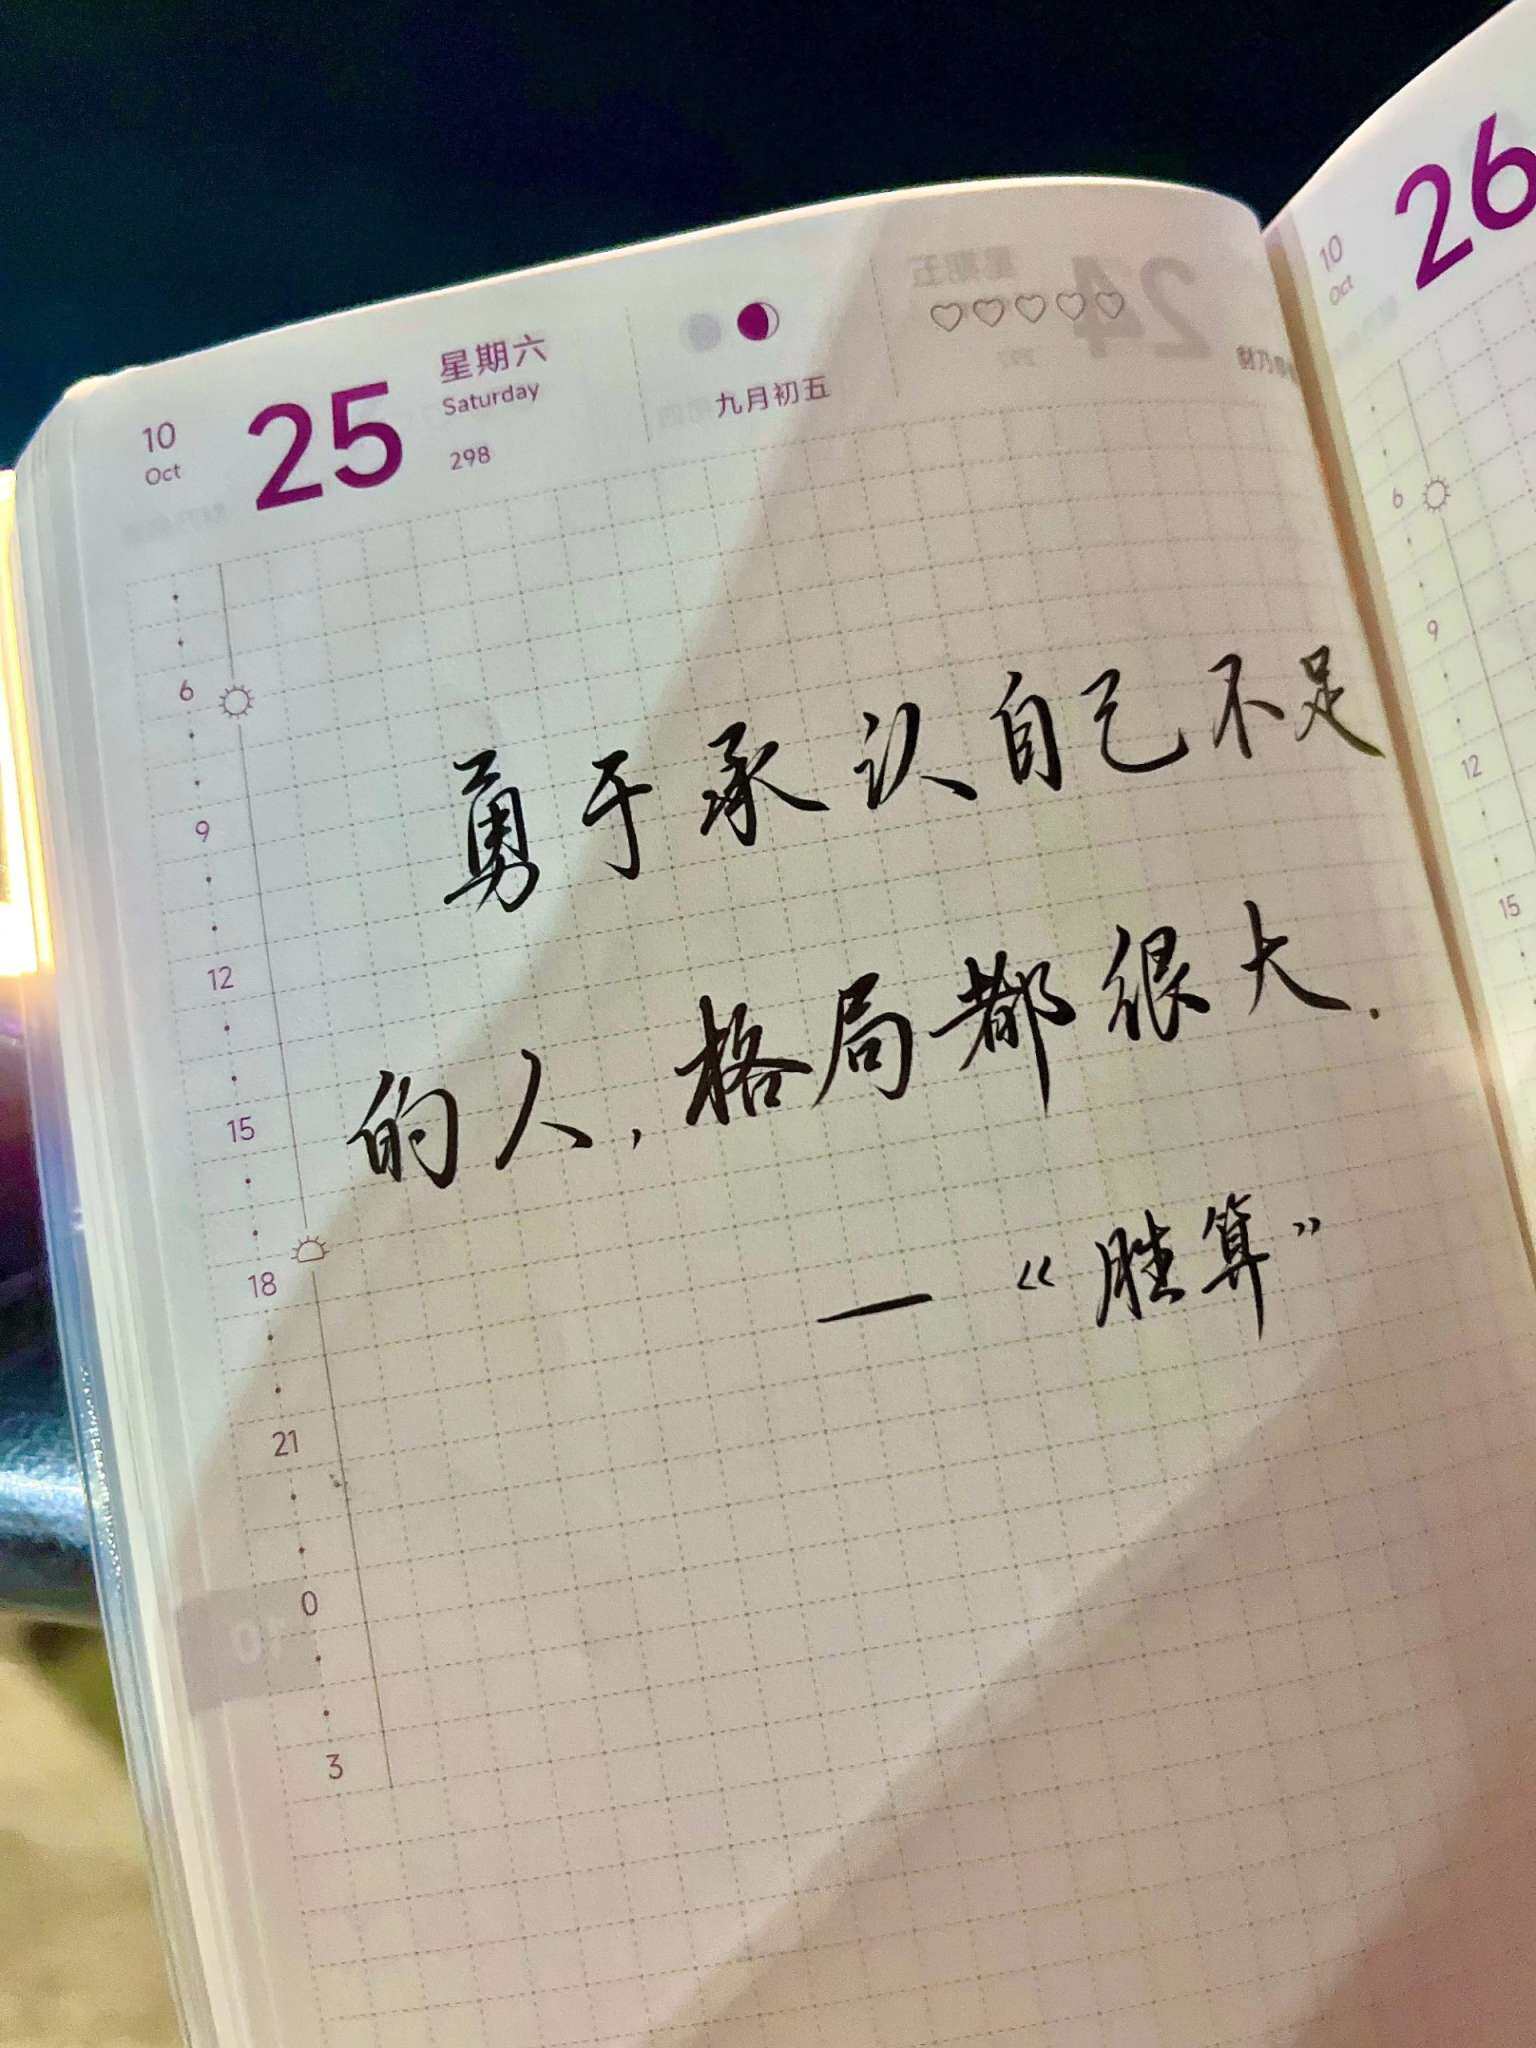 10
Oct
25
星期六
Saturday
298
九月初五
6
9
12
15
18
21
0
3
勇于承认自己不足
的人，格局都很大.
—《胜算》
10
Oct
26
6
9
12
15